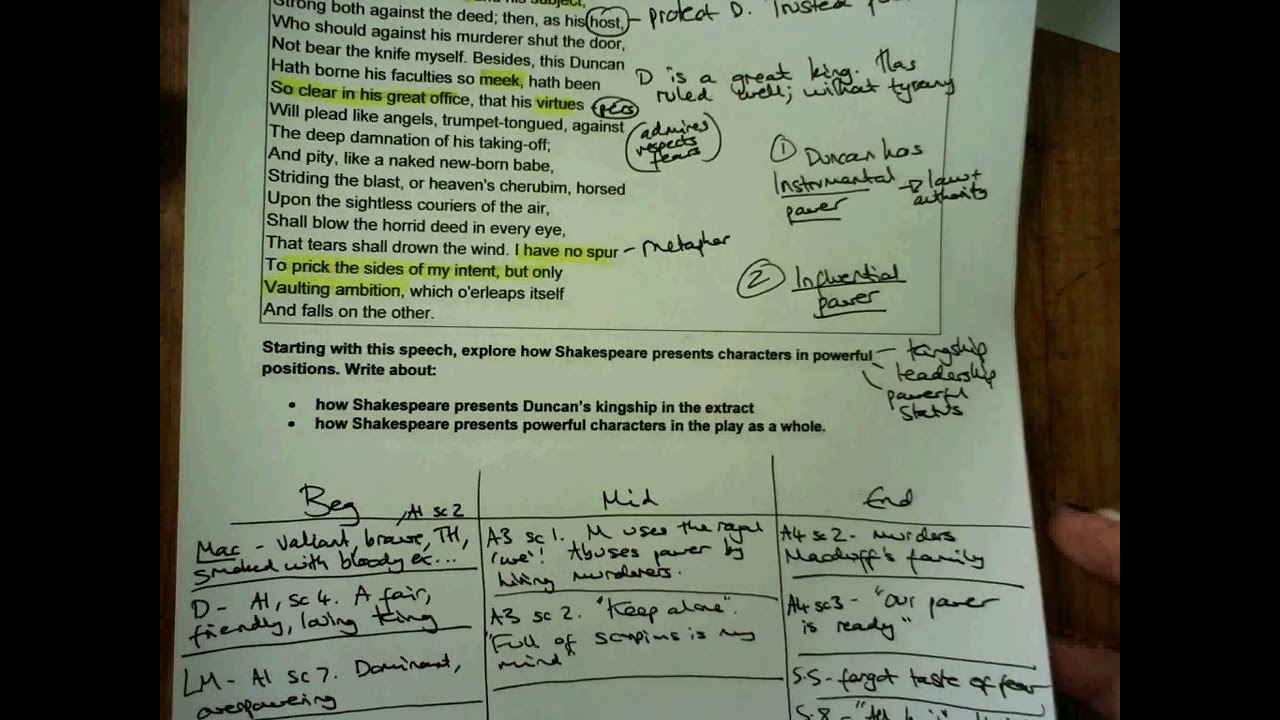 and his subject,
Strong both against the deed; then, as his host, – protect D. Trusted
Who should against his murderer shut the door,
Not bear the knife myself. Besides, this Duncan
Hath borne his faculties so meek, hath been
So clear in his great office, that his virtues
Will plead like angels, trumpet-tongued, against
The deep damnation of his taking-off;
And pity, like a naked new-born babe,
Striding the blast, or heaven's cherubim, horsed
Upon the sightless couriers of the air,
Shall blow the horrid deed in every eye,
That tears shall drown the wind. I have no spur – Metaphor
To prick the sides of my intent, but only
Vaulting ambition, which o'erleaps itself
And falls on the other.
D is a great king. Has
ruled well; without tyranny
(admires
respects
fears)
① Duncan has
Instrumental → law +
power authority
② Influential
power
Starting with this speech, explore how Shakespeare presents characters in powerful – kingship
positions. Write about: leadership
powerful
status
• how Shakespeare presents Duncan's kingship in the extract
• how Shakespeare presents powerful characters in the play as a whole.
Beg Mid End
A1 sc 2
Mac – valiant brave, TH,
smoked with bloody ex...
D – A1, sc 4. A fair,
friendly, loving king
LM – A1 sc 7. Dominant,
overpowering
A3 sc 1. M uses the royal
'we'! Abuses power by
hiring murderers.
A3 sc 2. "Keep alone".
"Full of scorpions is my
mind"
A4 sc 2 – murders
Macduff's family
A4 sc 3 – "Our power
is ready"
5.5 – forgot taste of fear
5.8 –